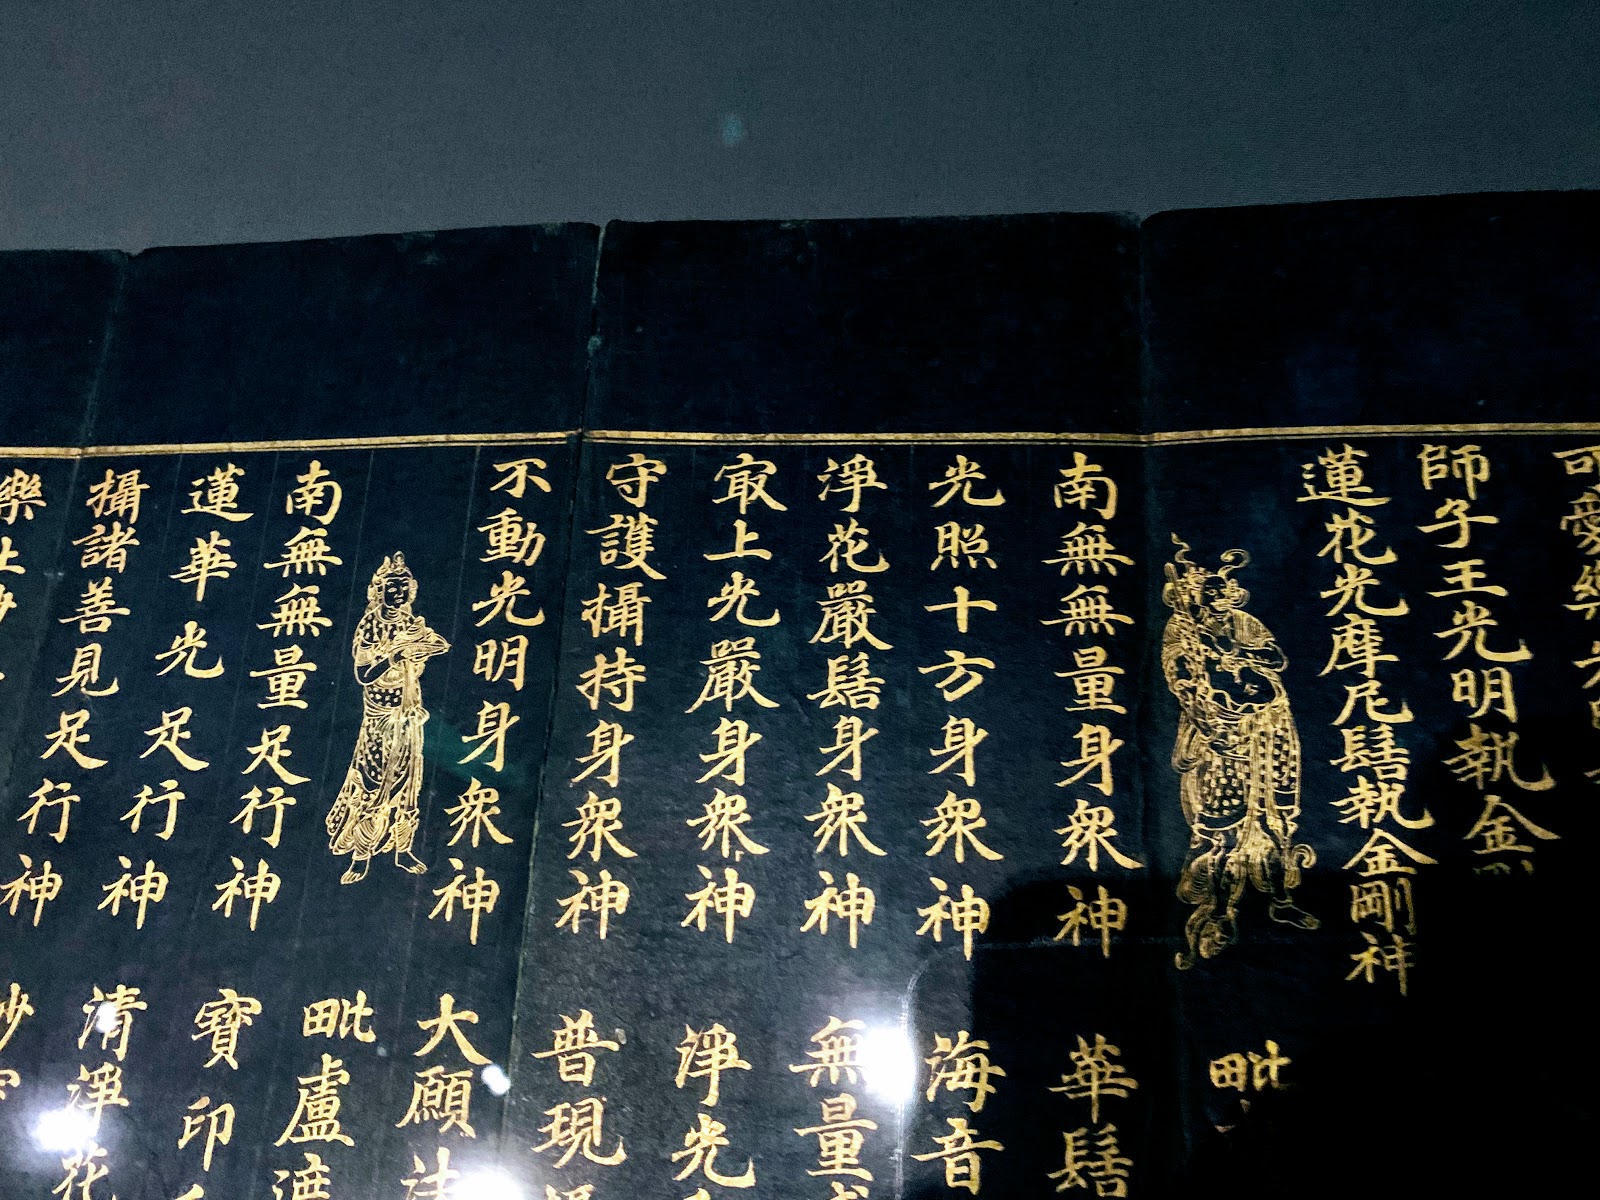 可愛樂光明
師子王光明執金剛
蓮花光摩尼髻執金剛神
毗
南無無量身衆神 華髻
光照十方身衆神 海音
淨花嚴髻身衆神 無量
冣上光嚴身衆神 淨光
守護攝持身衆神 普現攝
不動光明身衆神 大願
南無無量足行神 毗盧遮
蓮華光足行神 寶印
攝諸善見足行神 清淨花
樂 神 妙